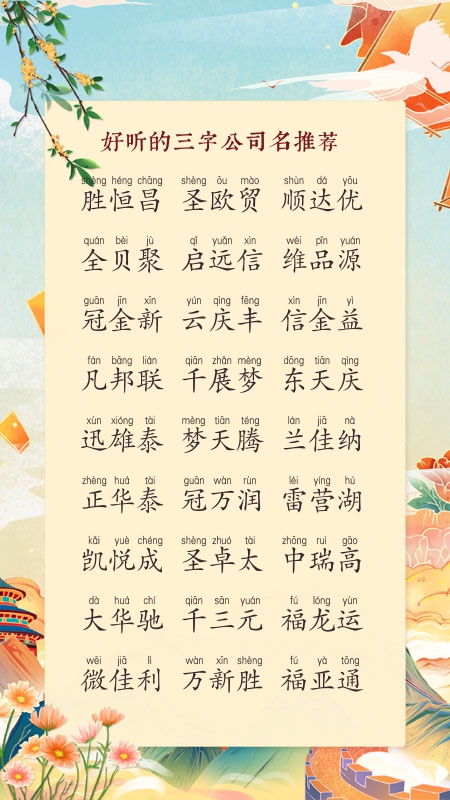 好听的三字公司名推荐
shèng héng chāng shèng ōu mào shùn dá yōu
胜恒昌 圣欧贸 顺达优
quán bèi jù qǐ yuǎn xìn wéi pǐn yuán
全贝聚 启远信 维品源
guān jīn xīn yún qìng fēng xìn jīn yì
冠金新 云庆丰 信金益
fán bāng lián qiān zhǎn mèng dōng tiān qìng
凡邦联 千展梦 东天庆
xùn xióng tài mèng tiān téng lán jiā nà
迅雄泰 梦天腾 兰佳纳
zhèng huá tài guān wàn rùn léi yíng hú
正华泰 冠万润 雷营湖
kǎi yuè chéng shèng zhuó tài zhōng ruì gāo
凯悦成 圣卓太 中瑞高
dà huá chí qiān sān yuán fú lóng yùn
大华驰 千三元 福龙运
wēi jiā lì wàn xīn shèng fú yà tōng
微佳利 万新胜 福亚通